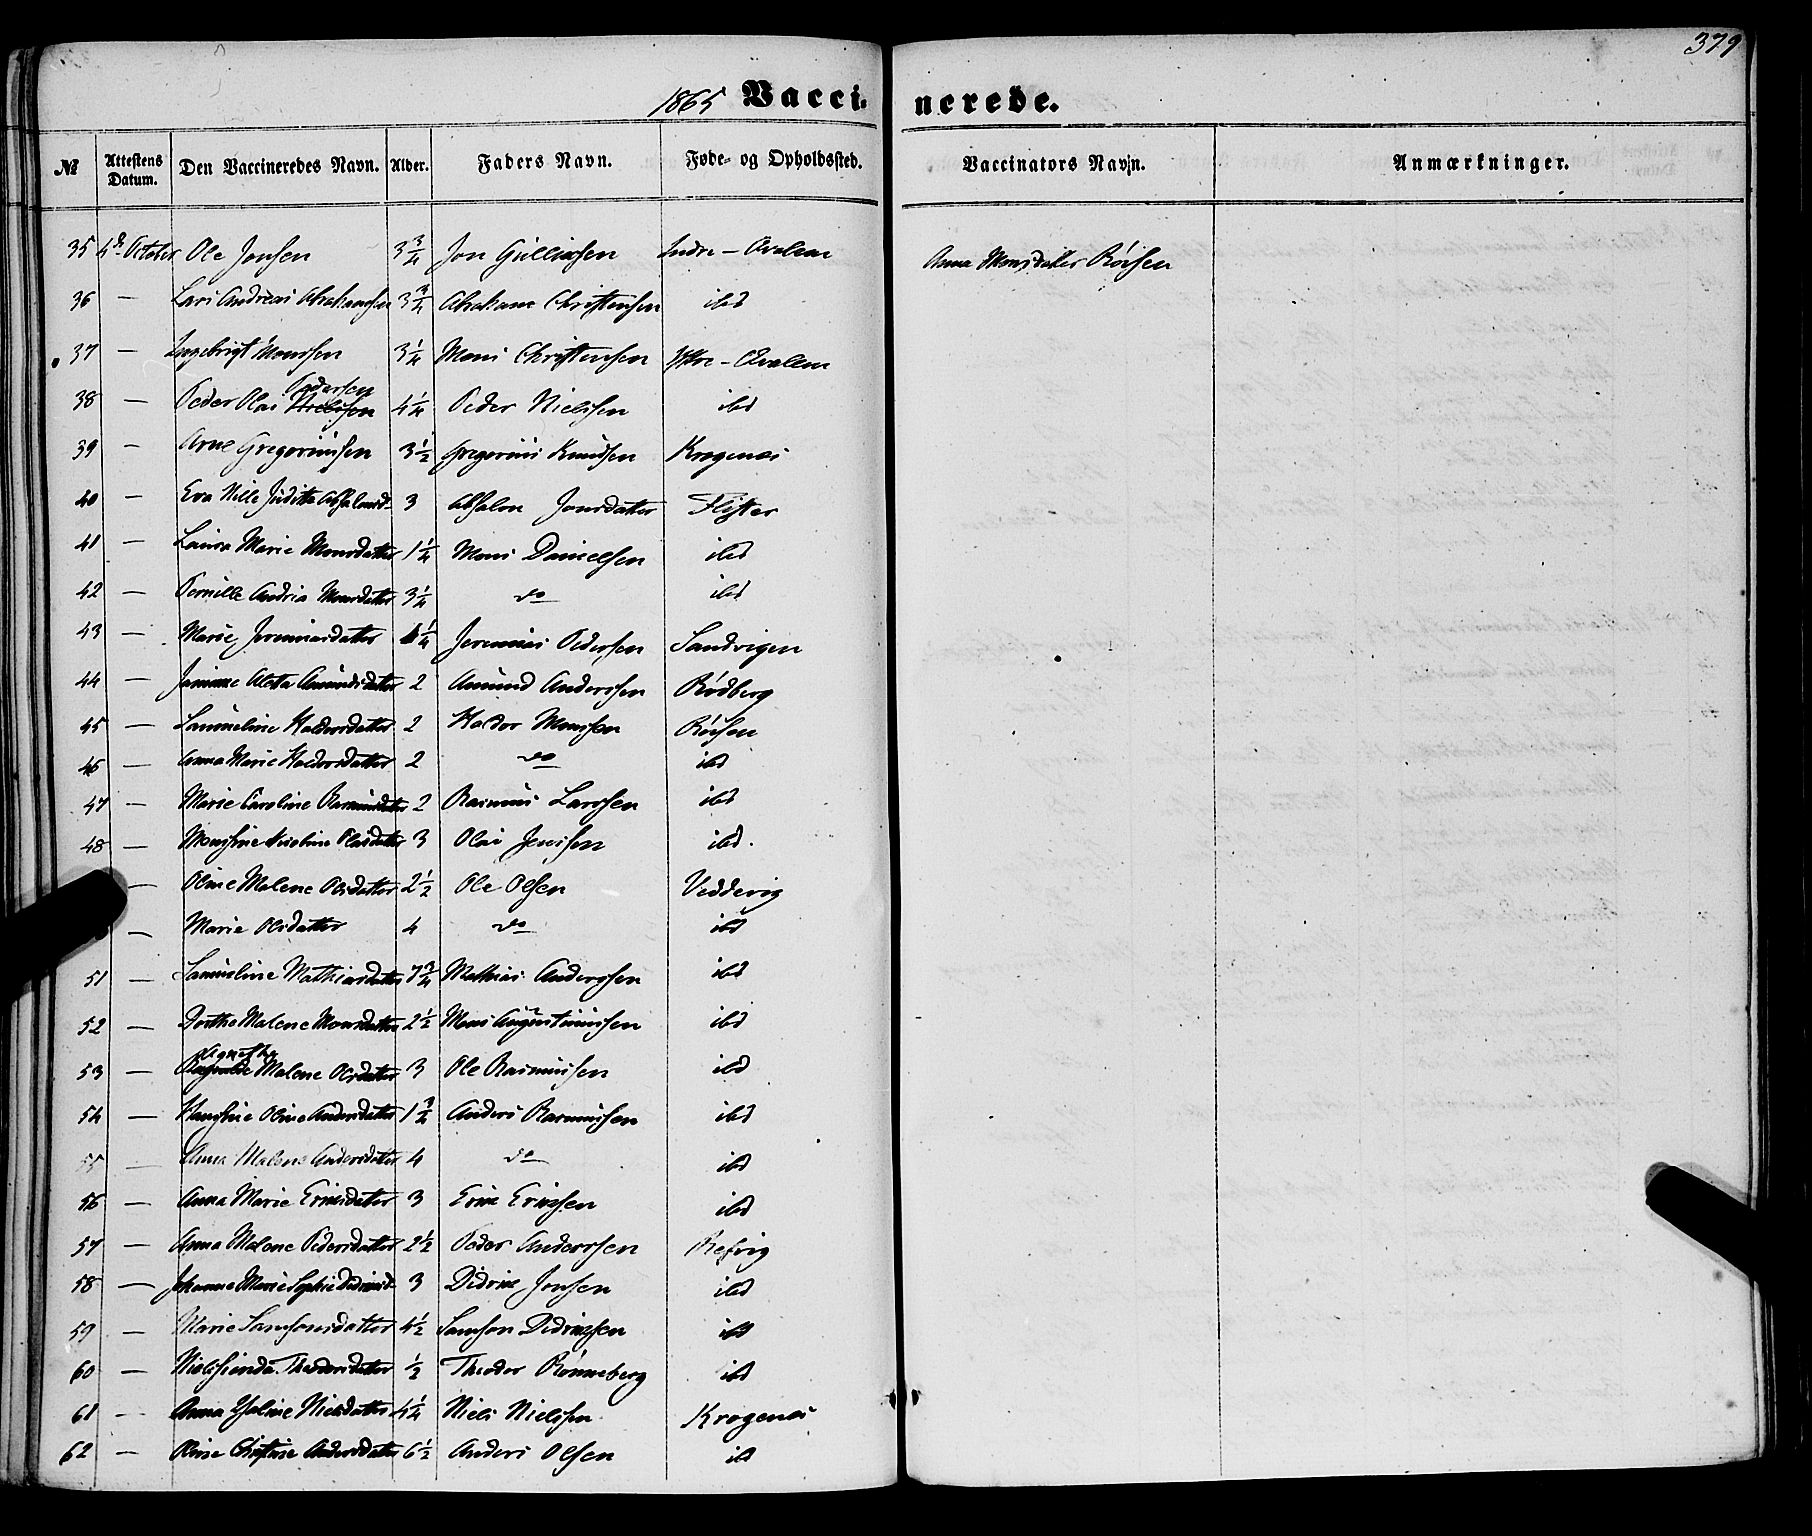 379
1865 Vacci- nerede.
№ Attestens Datum. Den Vaccineredes Navn. Alder. Faders Navn. Føde- og Opholdssted. Vaccinators Navn. Anmærkninger.
35 4de October Ole Jonsen 3 3/4 Jon Gulliksen Indre - Qvalem Anna Monsdatter Röisen
36 — Lars Andreas Abrahamsen 3 3/4 Abraham Christensen ibd
37 — Ingebrigt Monssen 3 1/4 Mons Christensen Yttre - Qvalem
38 — Peder Olai Nielssen Pedersen 4 1/4 Peder Nielssen ibd
39 — Arne Gregoriussen 3 1/2 Gregorius Knudsen Krogenæs
40 — Eva Nille Juditha Absalonsd. 3 Absalon Jonsdatter
41 — Laura Marie Monsdatter 1 1/4 Mons Danielsen ibd
42 — Pernille Andria Monsdatter 3 1/4 do ibd
43 — Marie Jeremiasdatter 1/4 Jeremias Pedersen Sandvigen
44 — Aletta Amundsdatter 2 Amund Anderssen Rödberg
45 — Samueline Haldorsdatter 2 Haldor Monssen Röisen
46 — Anna Marie Haldorsdatter 2 do ibd
47 — Marie Caroline Rasmusdatter 2 Rasmus Larssen ibd
48 — Monsine Nicoline Olaisdatter 3 Olai Jenssen ibd.
— Oline Malene Olsdatter 2 1/2 Ole Olsen Vedvig
— Marie Olsdatter 4 do ibd
51 — Samueline Mathiasdatter 7 3/4 Mathias Anderssen ibd
52 — Dorthe Malene Monsdatter 2 1/2 Mons Augustinussen ibd
53 — Agnetha Malene Olsdatter 3 Ole Rasmussen ibd
54 — Hansine Oline Andersdatter 1 1/2 Anders Rasmussen ibd
55 — Anna Malene Andersdatter 4 do ibd
56 — Anna Marie Ericksdatter 3 Erick Erickssen ibd
57 — Anna Malene Pedersdatter 2 1/2 Peder Anderssen Refvig
58 — Johanne Marie Sophie Didricksd. 3 Didrick Jonsen ibd
59 — Marie Samsonsdatter 4 1/2 Samson Didricksen ibd
60 — Theodorsdatter 1/2 Theodor Rönneberg ibd
61 — Anna Nielsdatter 4 1/4 Niels Nielssen Krogenæs
62 — Oline Christine Andersdatter 6 1/2 Anders Olsen ib